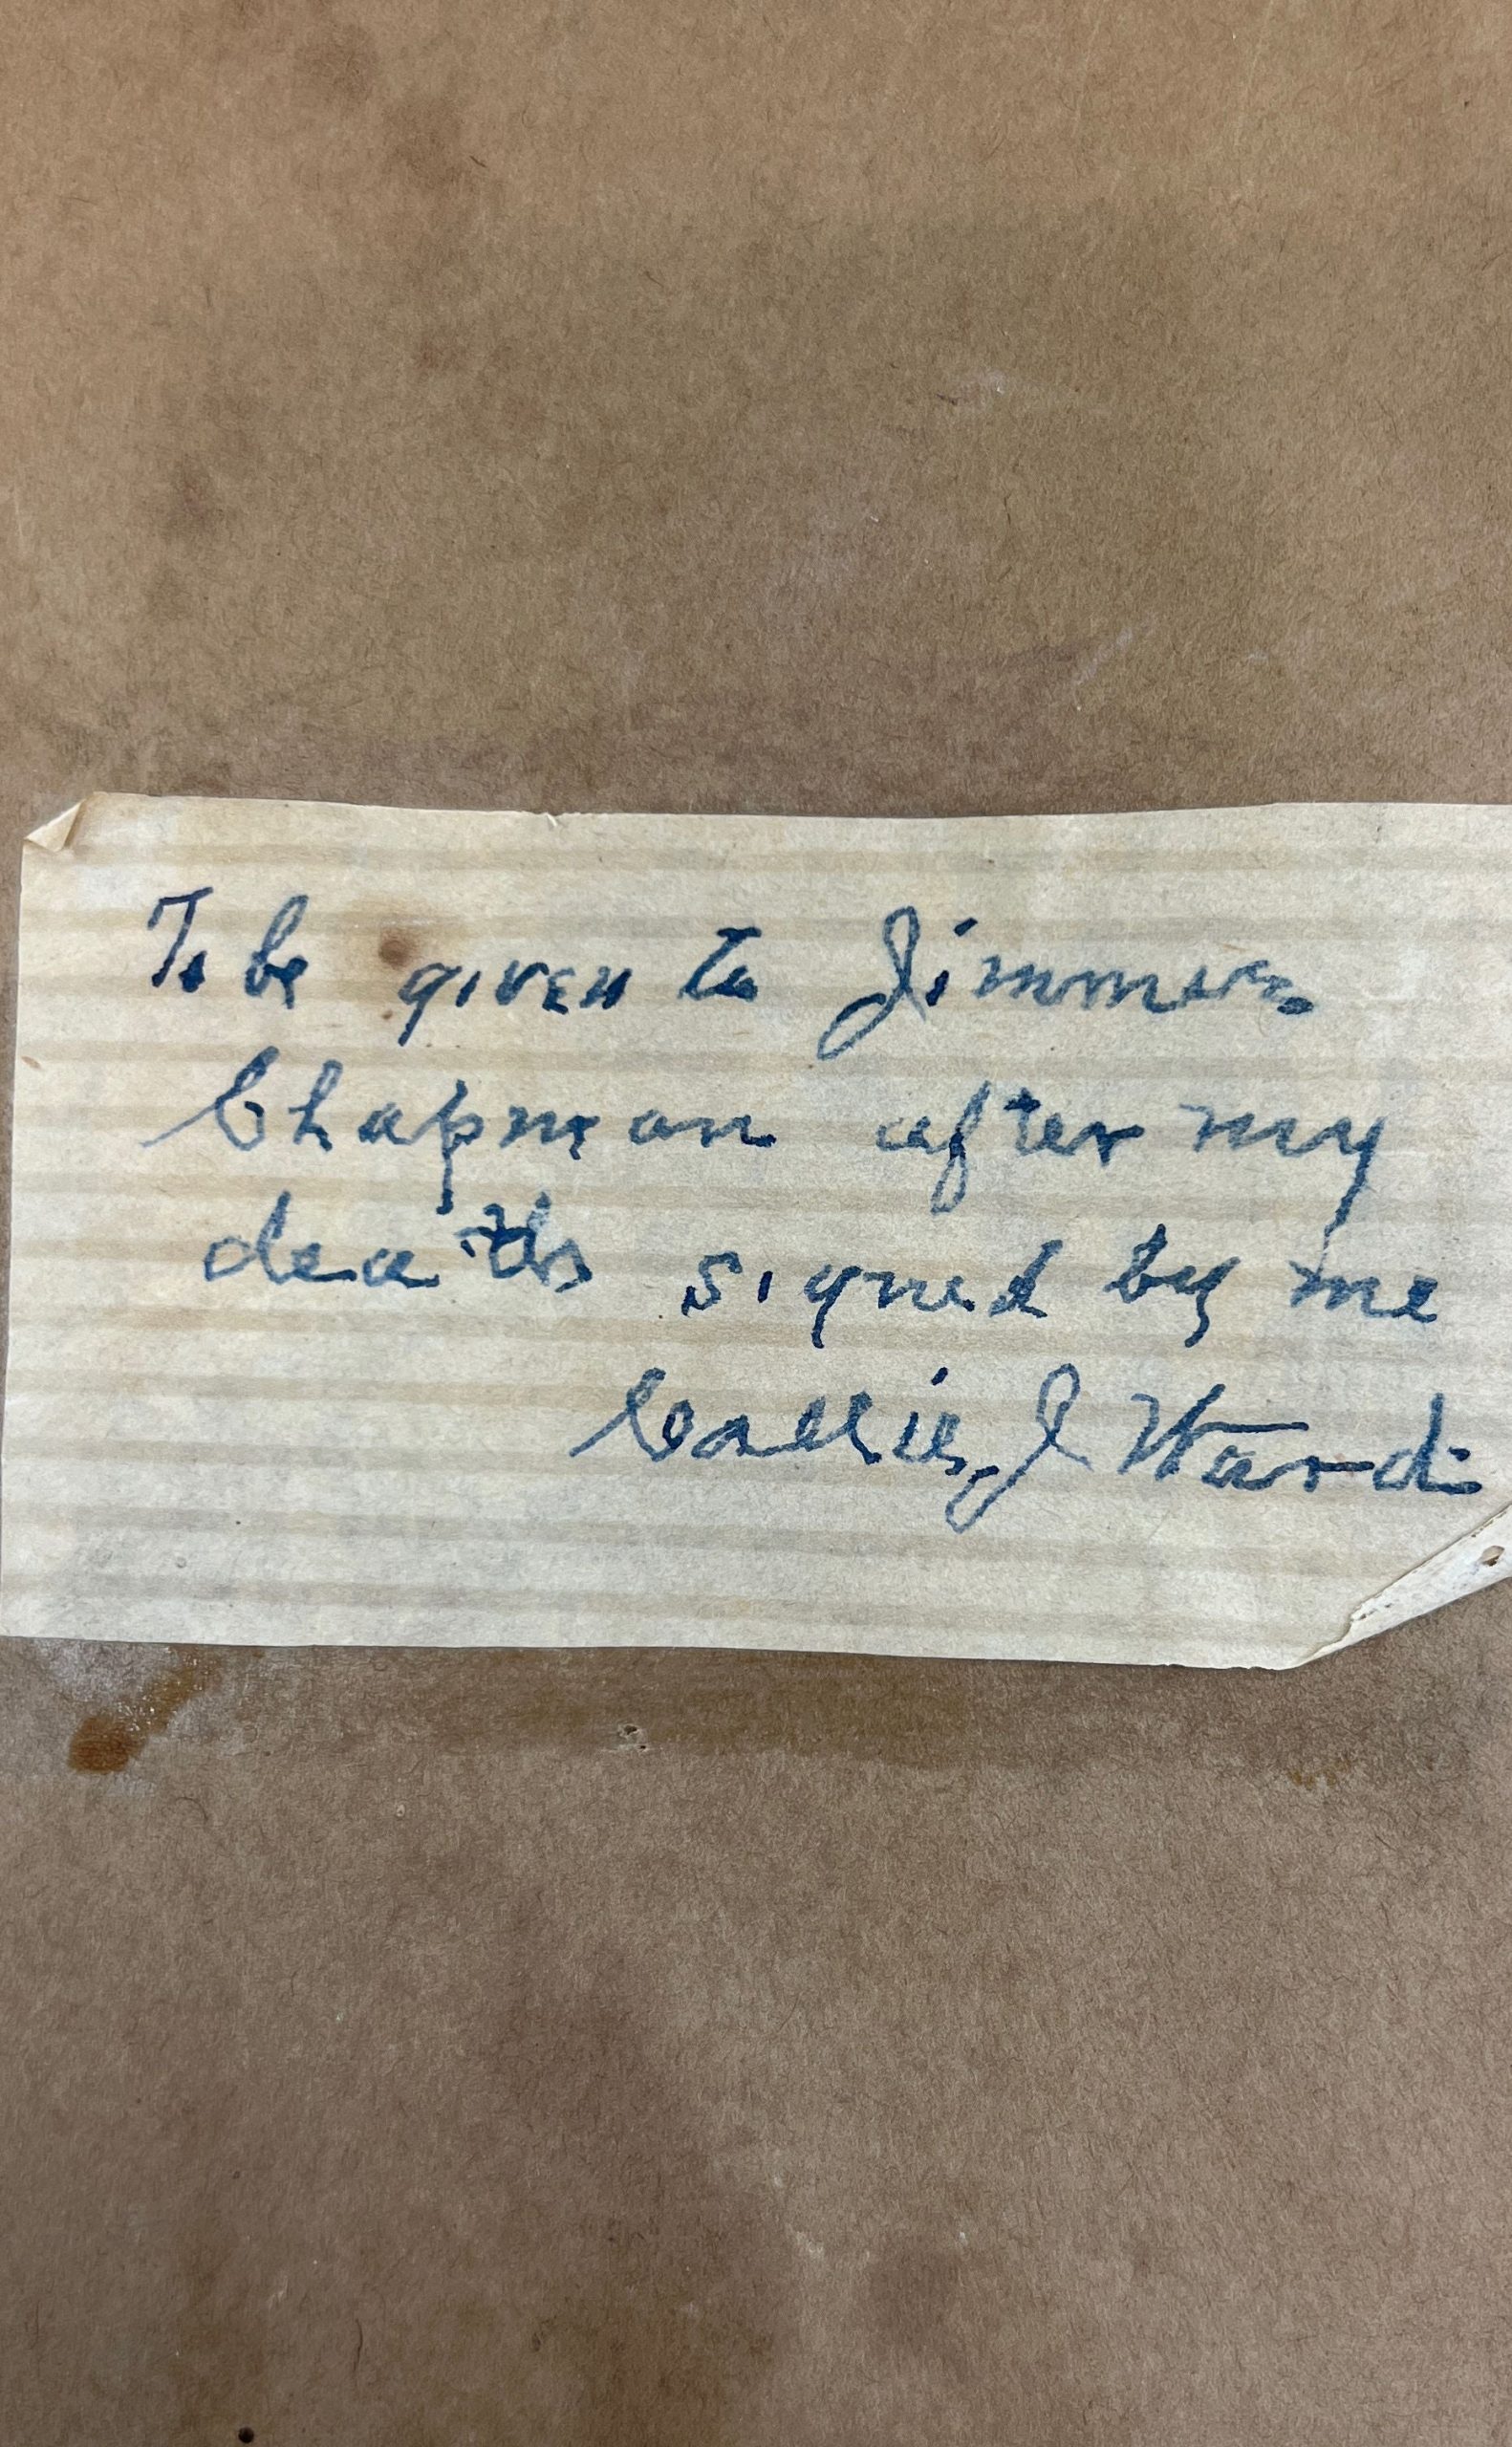 To be given to Jimmie
Chapman after my
death signed by me
Callie J Ward